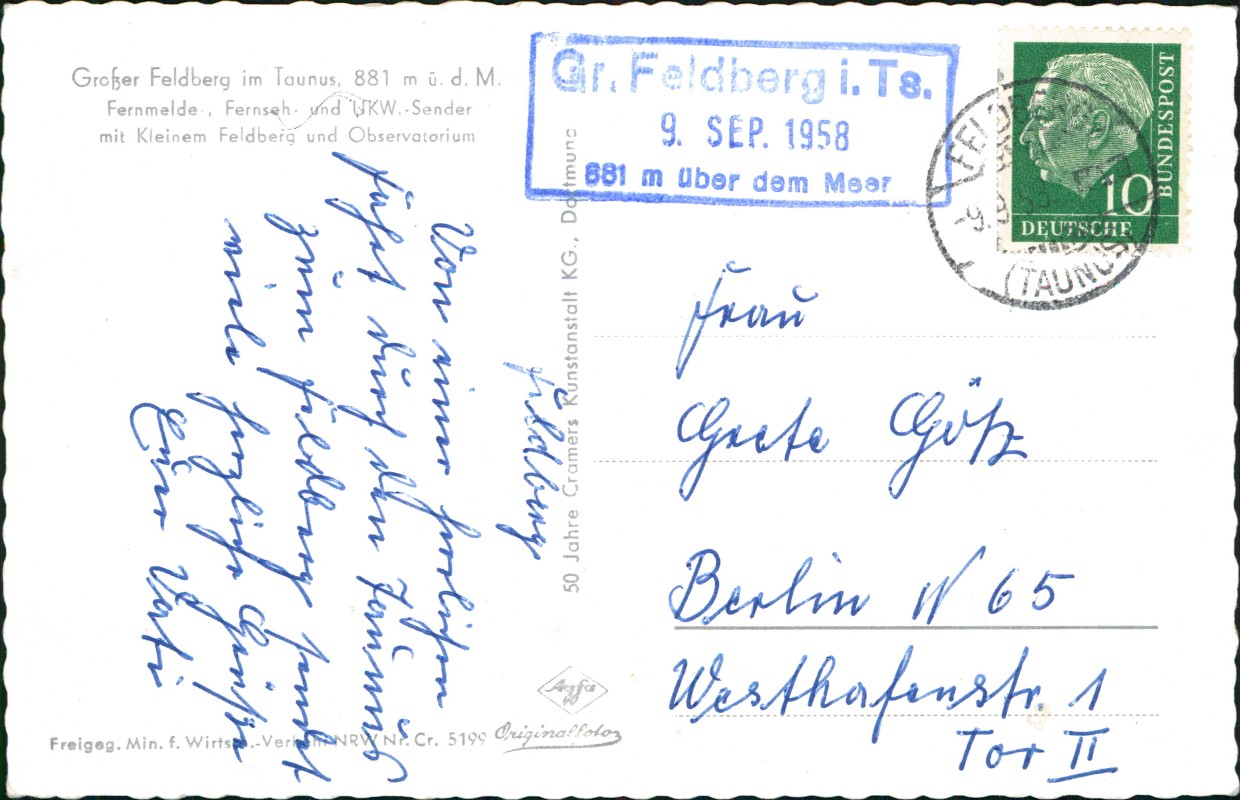 Großer Feldberg im Taunus, 881 m ü. d. M.
Fernmelde-, Fernseh- und UKW.-Sender
mit Kleinem Feldberg und Observatorium
Gr. Feldberg i. Ts.
9. SEP. 1958
881 m über dem Meer
BUNDESPOST
10
DEUTSCHE
FELDBERG
-9.9.58
(TAUNUS)
Feldberg
Von einer herrlichen
Fahrt durch den Taunus
zum Feldberg sendet
viele herzliche Grüße
Euer Vati
50 Jahre Cramers Kunstanstalt KG., Dortmund
Frau
Grete Götz
Berlin N 65
Westhafenstr. 1
Tor II
Agfa
Originalfoto
Freigeg. Min. f. Wirtsch.-Verkehr NRW Nr. Cr. 5199